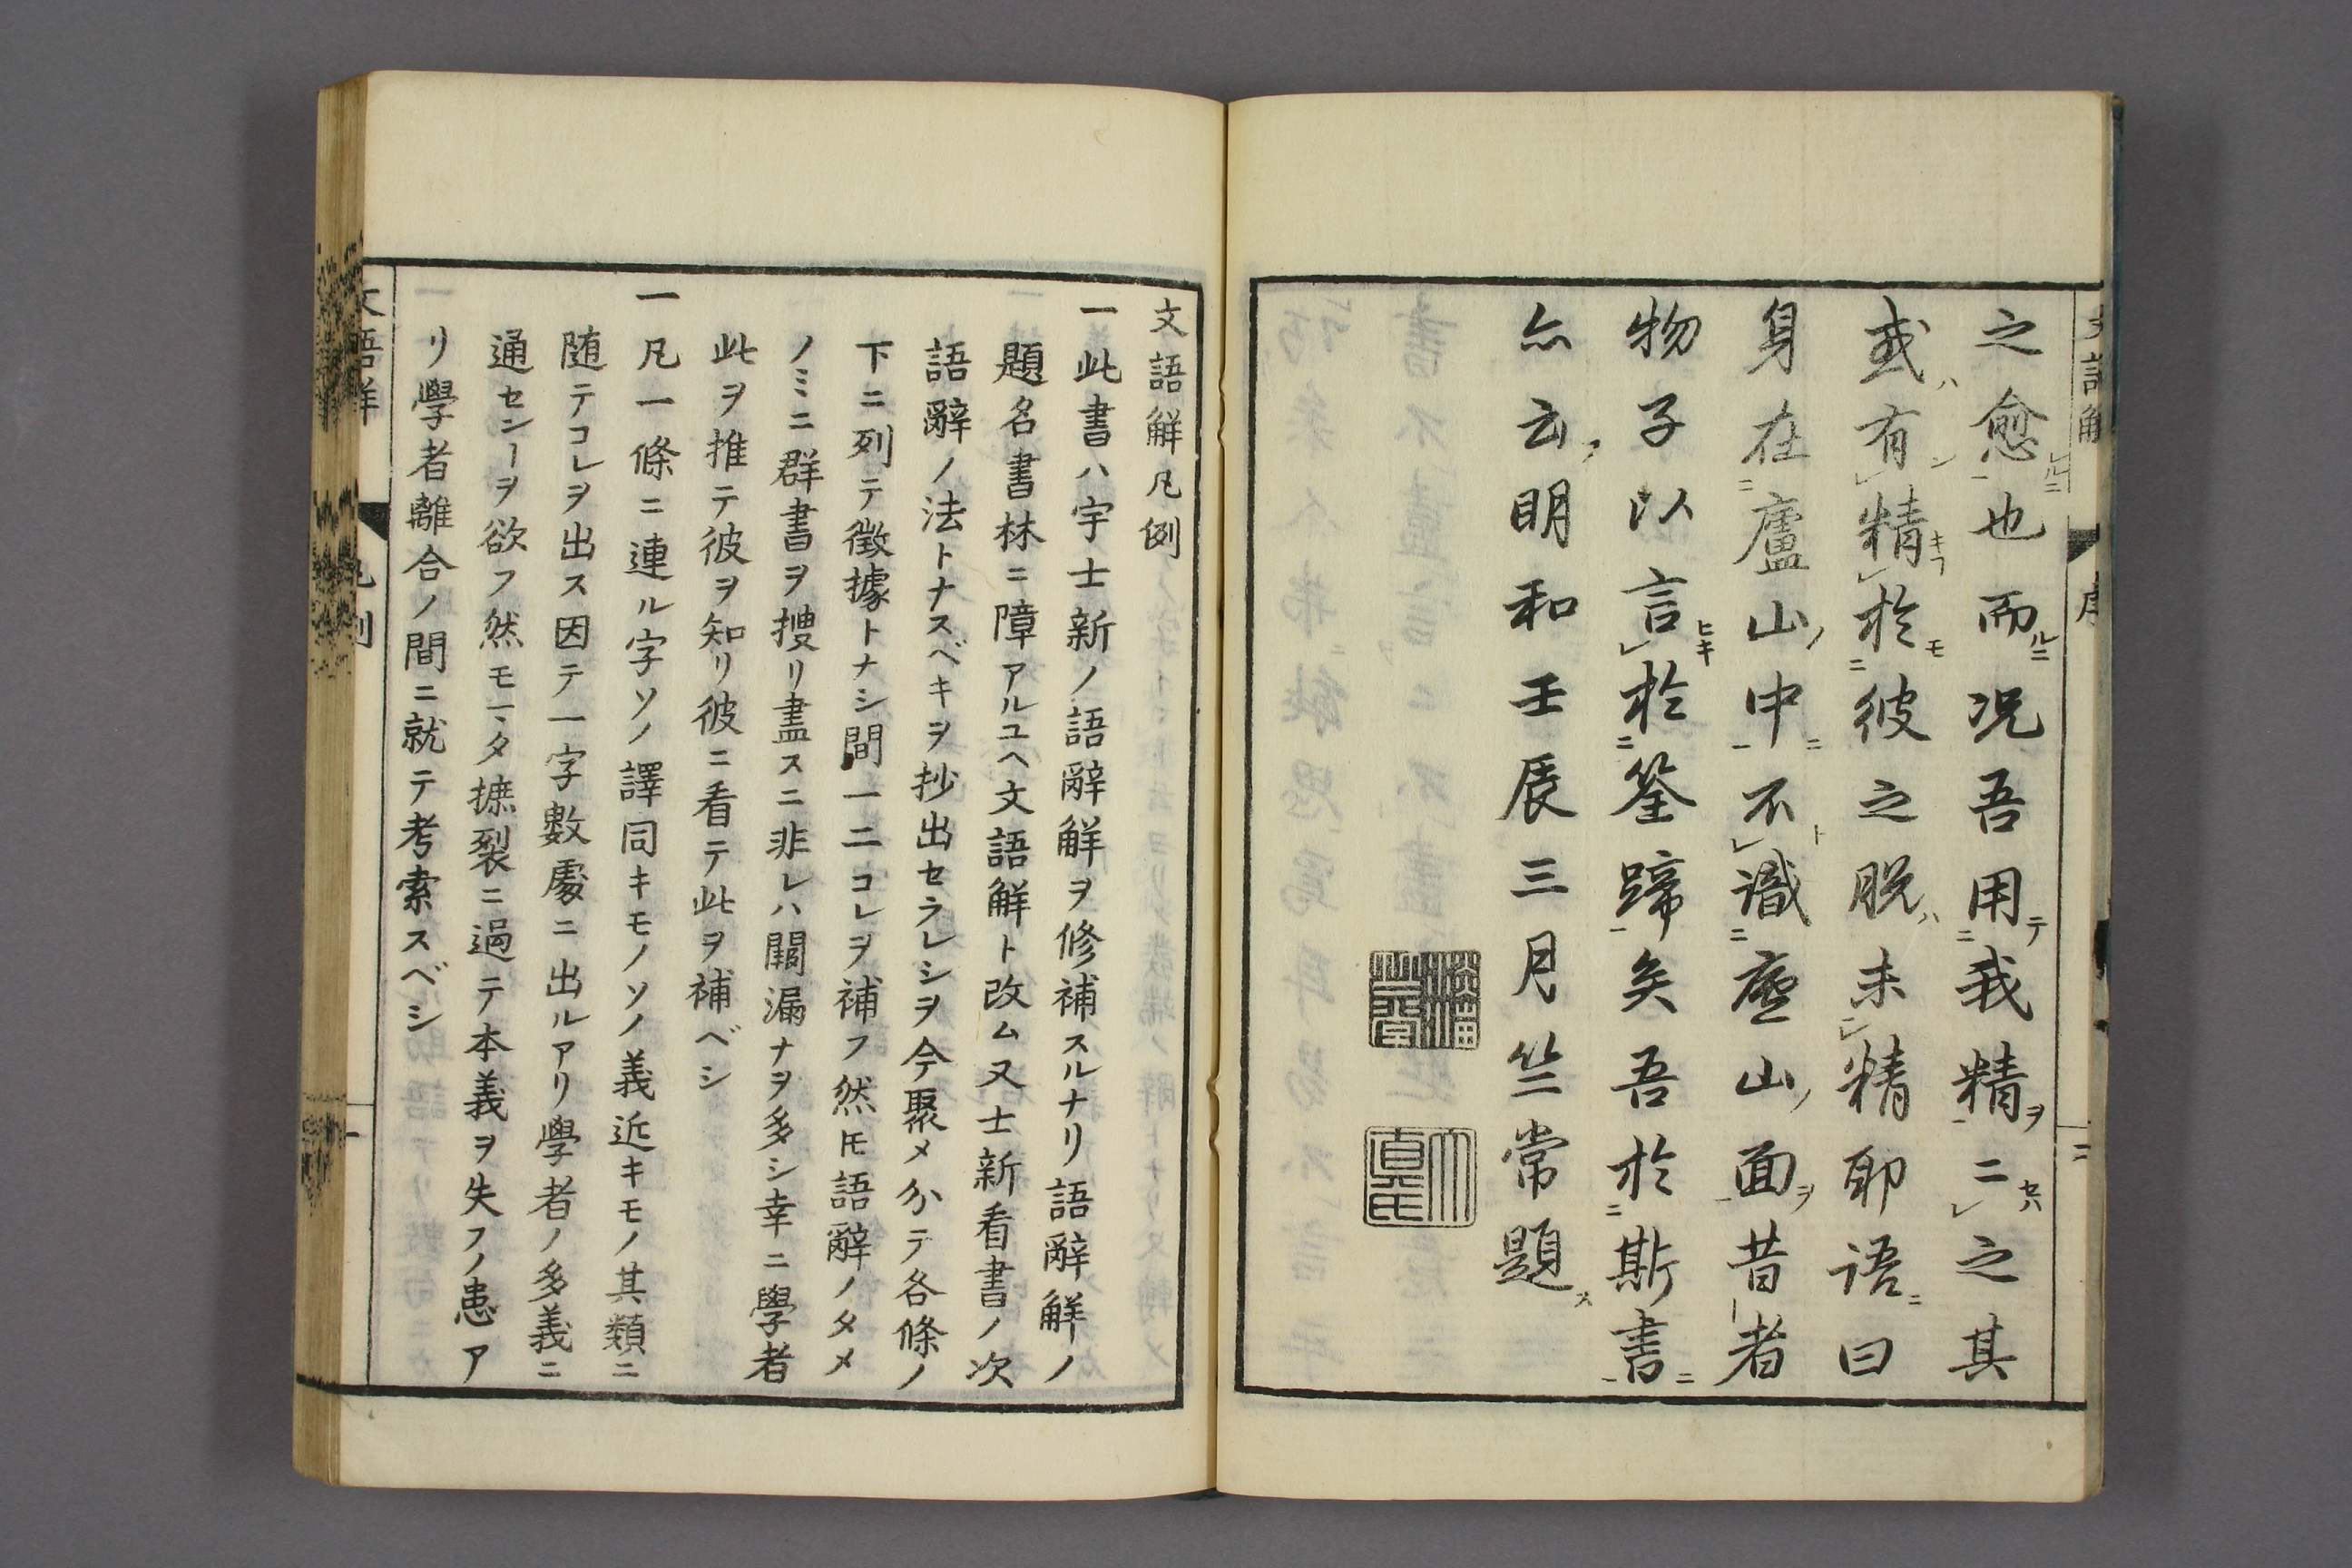 之愈也而況吾用我精二之其
或有精於彼之脱未精耶語曰
身在廬山中不識廬山面昔者
物子以言於筌蹄矣吾於斯書
亦云明和壬辰三月竺常題
文語解凡例
一此書ハ宇士新ノ語辭解ヲ修補スルナリ語辭解ノ
題名書林ニ障アルユヘ文語解ト改ム又士新看書ノ次
語辭ノ法トナスベキヲ抄出セラレシヲ今聚メ分テ各條ノ
下ニ列テ徴據トナシ間一二コレヲ補フ然𪜈語辭ノタメ
ノミニ群書ヲ捜リ盡スニ非レハ闕漏ナヲ多シ幸ニ學者
此ヲ推テ彼ヲ知リ彼ニ看テ此ヲ補ベシ
一凡一條ニ連ル字ソノ譯同キモノソノ義近キモノ其類ニ
随テコレヲ出ス因テ一字數處ニ出ルアリ學者ノ多義ニ
通センヿヲ欲フ然モマタ摭裂ニ過テ本義ヲ失フノ患ア
リ學者離合ノ間ニ就テ考索スベシ